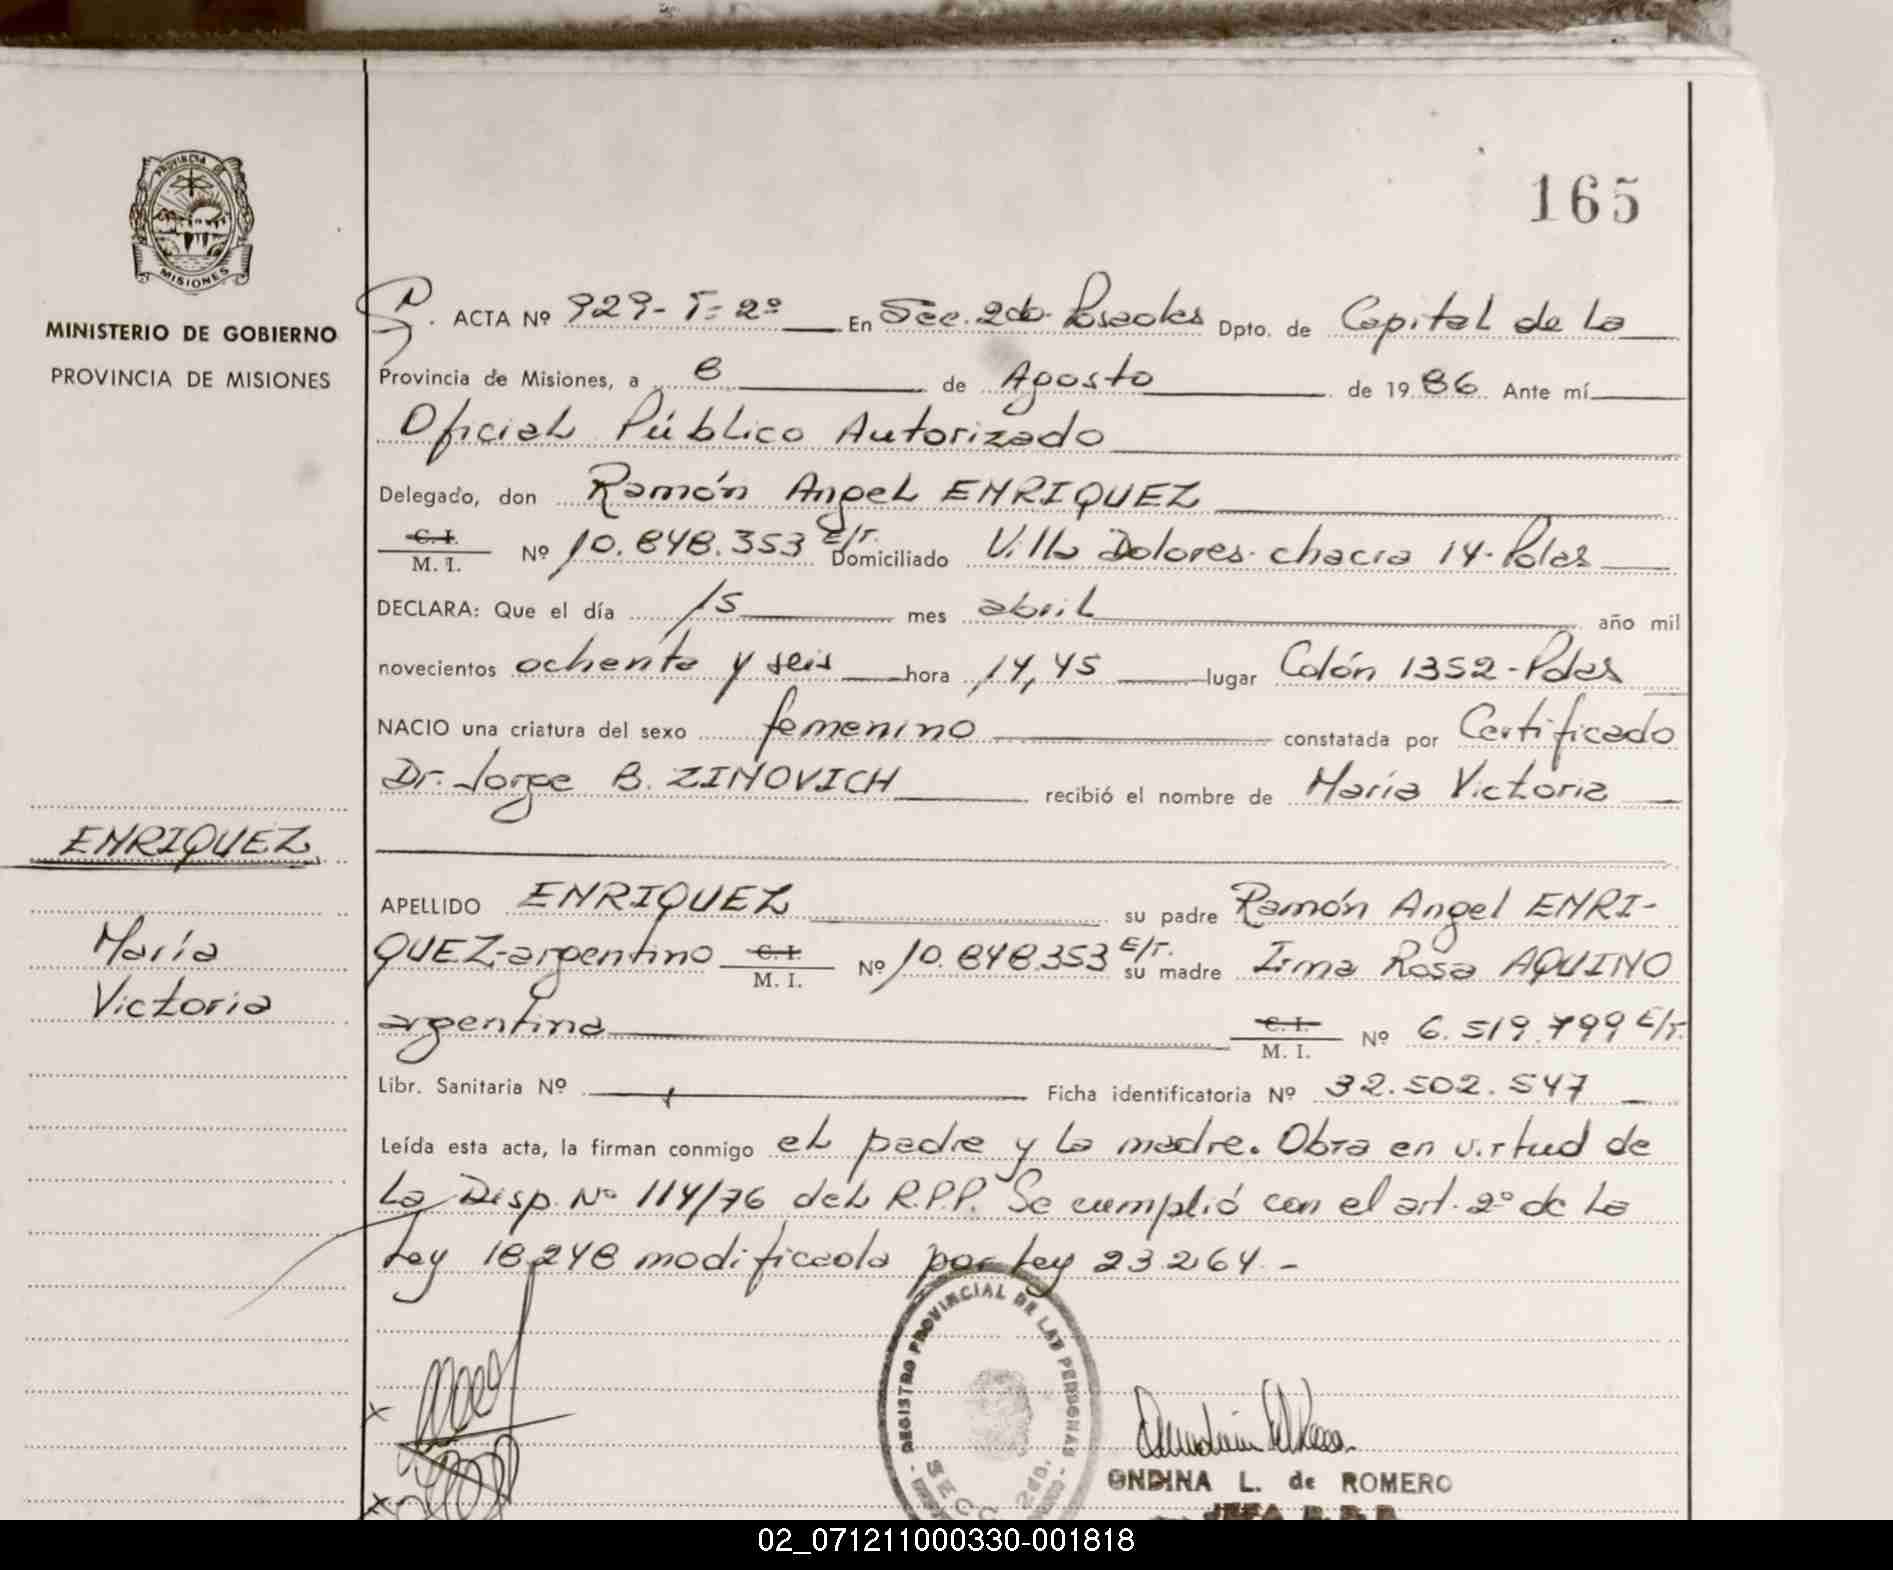 165
PROVINCIA DE
MISIONES
MINISTERIO DE GOBIERNO
PROVINCIA DE MISIONES
ACTA Nº 929-T=2º En Secc. 2da. Posadas Dpto. de Capital de la
Provincia de Misiones, a 8 de Agosto de 1986. Ante mí
Oficial Público Autorizado
Delegado, don Ramón Angel ENRIQUEZ
C. I.
M. I. Nº 10.848.353 E/T. Domiciliado Villa Dolores-chacra 14-Pdas
DECLARA: Que el día 15 mes abril año mil
novecientos ochenta y seis hora 14,45 lugar Colón 1352-Pdas
NACIO una criatura del sexo femenino constatada por Certificado
Dr. Jorge B. ZINOVICH recibió el nombre de María Victoria
ENRIQUEZ
María
Victoria
APELLIDO ENRIQUEZ su padre Ramón Angel ENRI-
QUEZ-argentino C. I. M. I. Nº 10.848.353 E/T. su madre Irma Rosa AQUINO
argentina C. I. M. I. Nº 6.519.799 E/T.
Libr. Sanitaria Nº Ficha identificatoria Nº 32.502.547
Leída esta acta, la firman conmigo el padre y la madre. Obra en virtud de
la Disp. Nº 114/76 del R.P.P. Se cumplió con el art. 2º de la
Ley 18248 modificada por Ley 23264.-
REGISTRO PROVINCIAL DE LAS PERSONAS
SECC. 2da.
ONDINA L. de ROMERO
JEFA
02_071211000330-001818